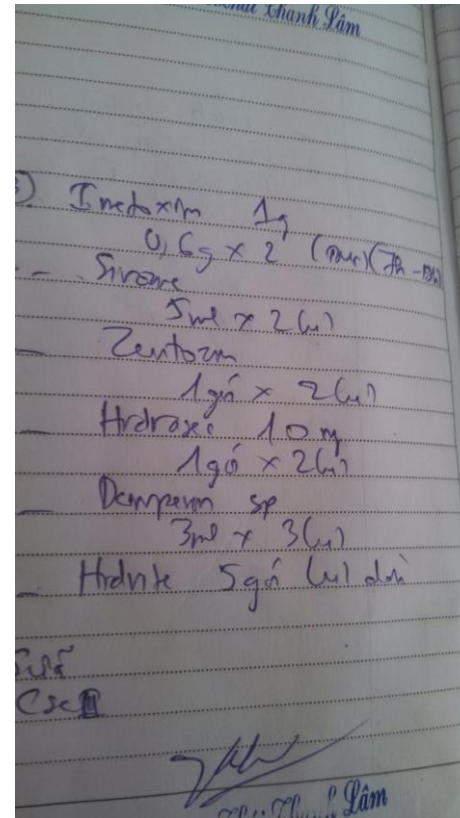 Thanh Lâm
Imetoxim 1g
0,6g x 2 (TMC)
- Sirome
5ml x 2 (u)
- Zentozin
1 gói x 2 (u)
- Hidraxe 10 mg
1 gói x 2 (u)
- Domperin sp
3ml x 3 (u)
- Hidrite 5 gói (u) dần
Sữa
Thanh Lâm